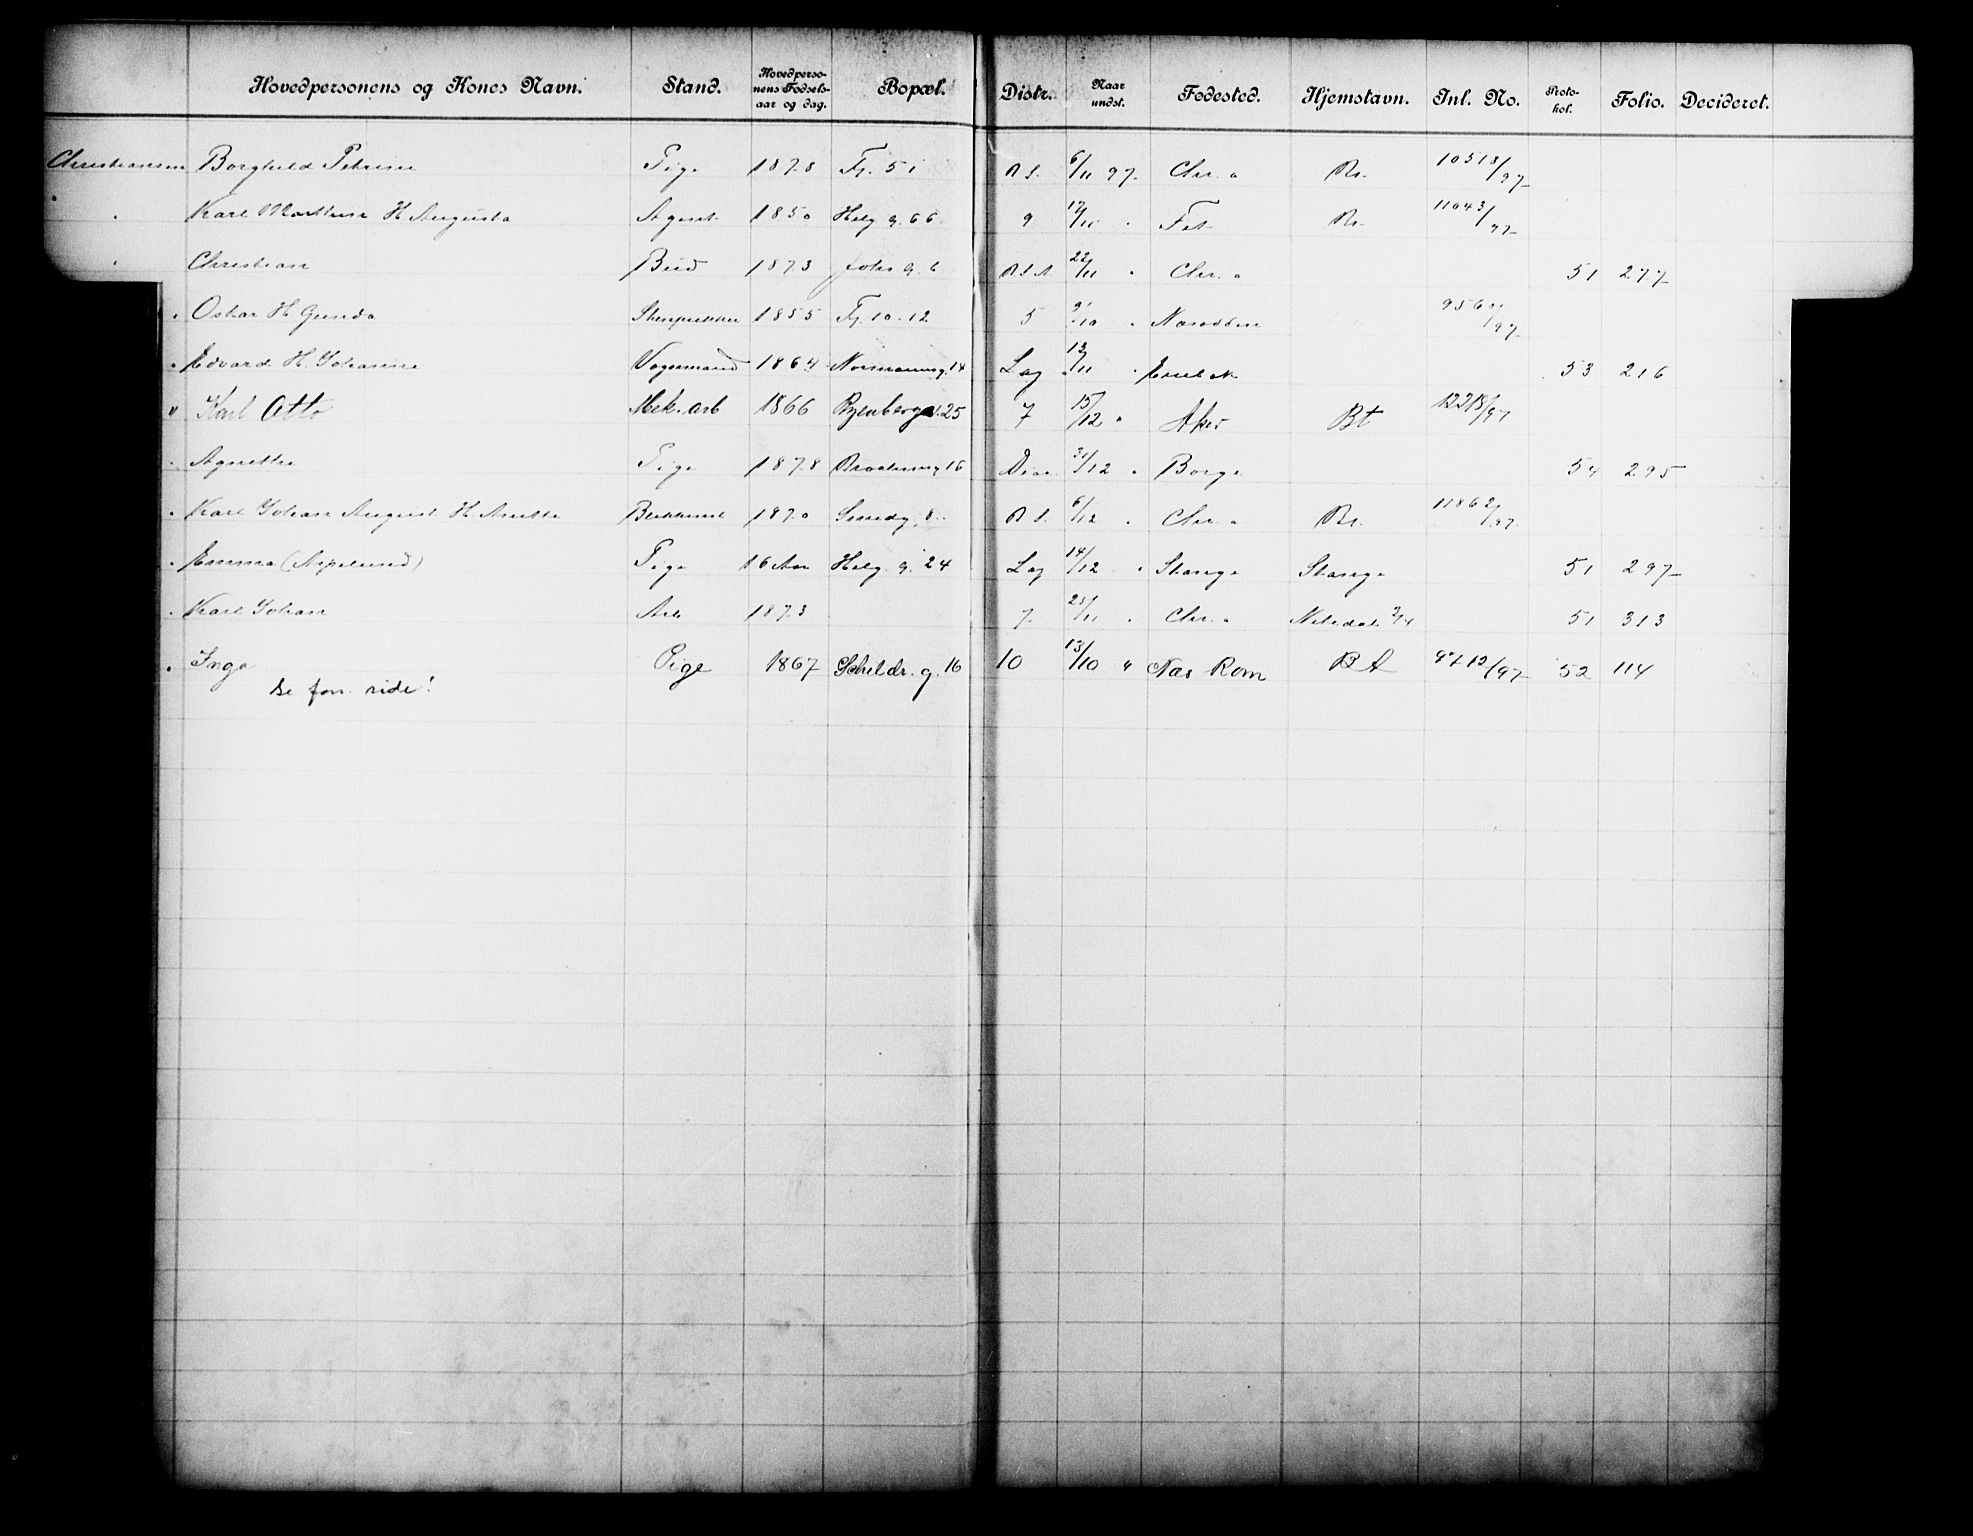 Hovedpersonens og Kones Navn. Stand. Hovedperso-nens Fødsels-aar og dag. Bopæl. Distr. Naar undst. Fødested. Hjemstavn. Inl. No. Proto-kol. Folio. Decideret.
Christiansen Borghild Petrine Pige 1878 Fj. 51 R.S. 6/11 97 Chr.a Bt. 10518/97
" Karl Mathias H Augusta Agent 1850 Helg. g. 66 9 17/11 " Fet Bt. 11043/97
" Christian Bud 1873 Johs g. 6 22/11 " Chr.a 51 277
" Oskar H Gunda 1855 Fj. 10-12 5 9/10 " Næsodden 956 /97
" Edvard H. Johanne Vognmand 1864 Normanng. 14 Lag 13/11 " 53 216
" Karl Otto Mek. arb 1866 Ryenbergg. 25 7 15/12 " Aker Bt 12218/97
" Agnethe Pige 1878 16 31/12 " Borge 54 295
" Karl Johan August H Anette 1870 Smedg. 8 R.S. 6/12 " Chr.a Bt. 11862/97
" Emma (Aspelund) Pige 16 Aar Helg. g. 24 Lag 14/12 " Stange Stange 51 297
" Karl Johan Arb 1873 7 25/11 " Chr.a Nitedal 2/4 51 313
" Inga Pige 1867 Scheldr. g. 16 10 13/10 " Næs Rom Bt 9712/97 52 114
Se forr. side!